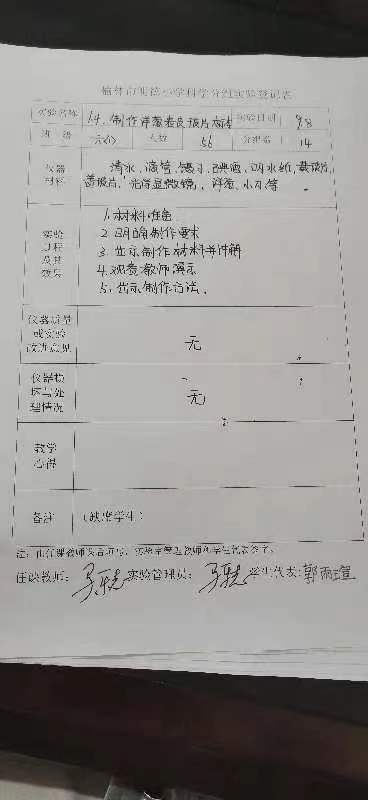 榆林市明德小学科学分组实验登记表
实验名称 1.4.制作洋葱表皮玻片标本 实验日期 9.8
班级 六(1) 人数 56 分组数 14
仪器材料 清水、滴管、镊子、碘酒、吸水纸、载玻片
盖玻片、光学显微镜、洋葱、小刀等
实验过程及其效果
1.材料准备
2.明确制作要求
3.出示制作材料并讲解
4.观察教师演示
5.出示制作方法.
仪器质量或实验改进意见 无
仪器损坏与处理情况 无
教学心得
备注 (缺席学生)
任课教师: 实验管理员: 学生代表:郭雨